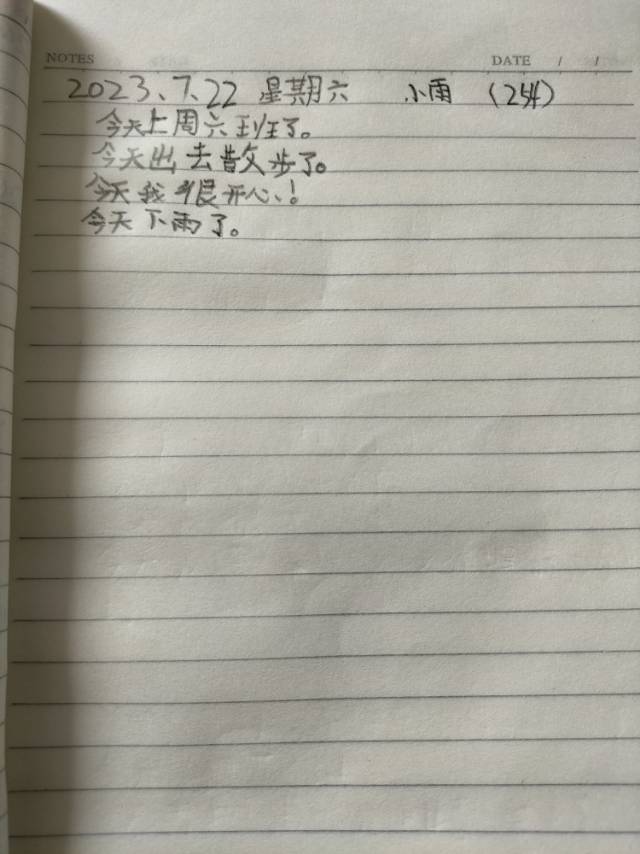 NOTES DATE / /
2023、7、22 星期六 小雨 (254)
今天上周六班了。
今天出去散步了。
今天我很开心、!
今天下雨了。